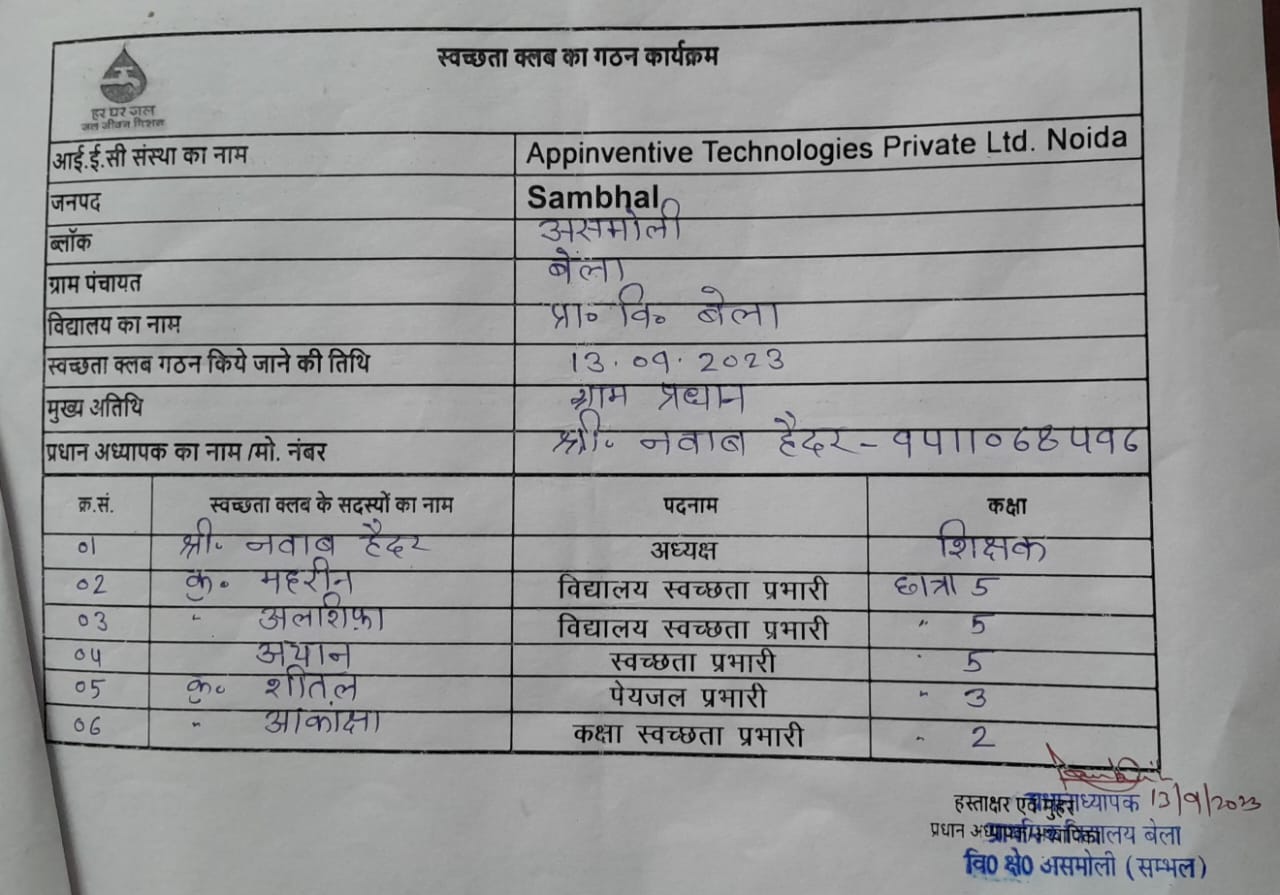 स्वच्छता क्लब का गठन कार्यक्रम
हर घर जल
जल जीवन मिशन
आई.ई.सी संस्था का नाम Appinventive Technologies Private Ltd. Noida
जनपद Sambhal
ब्लॉक असमोली
ग्राम पंचायत बेला
विद्यालय का नाम प्रा० वि० बेला
स्वच्छता क्लब गठन किये जाने की तिथि 13.09.2023
मुख्य अतिथि ग्राम प्रधान
प्रधान अध्यापक का नाम /मो. नंबर श्री. नवाब हैदर-
क्र.सं. स्वच्छता क्लब के सदस्यों का नाम पदनाम कक्षा
01 श्री. नवाब हैदर अध्यक्ष शिक्षक
02 कु. महरीन विद्यालय स्वच्छता प्रभारी छात्रा 5
03 " अलशिफ़ा विद्यालय स्वच्छता प्रभारी " 5
04 अयान स्वच्छता प्रभारी " 5
05 कु. शीतल पेयजल प्रभारी " 3
06 " आकांक्षा कक्षा स्वच्छता प्रभारी " 2
हस्ताक्षर एवं मुहर
13/9/2023
प्रधान
विद्यालय बेला
वि0 क्षे0 असमोली (सम्भल)